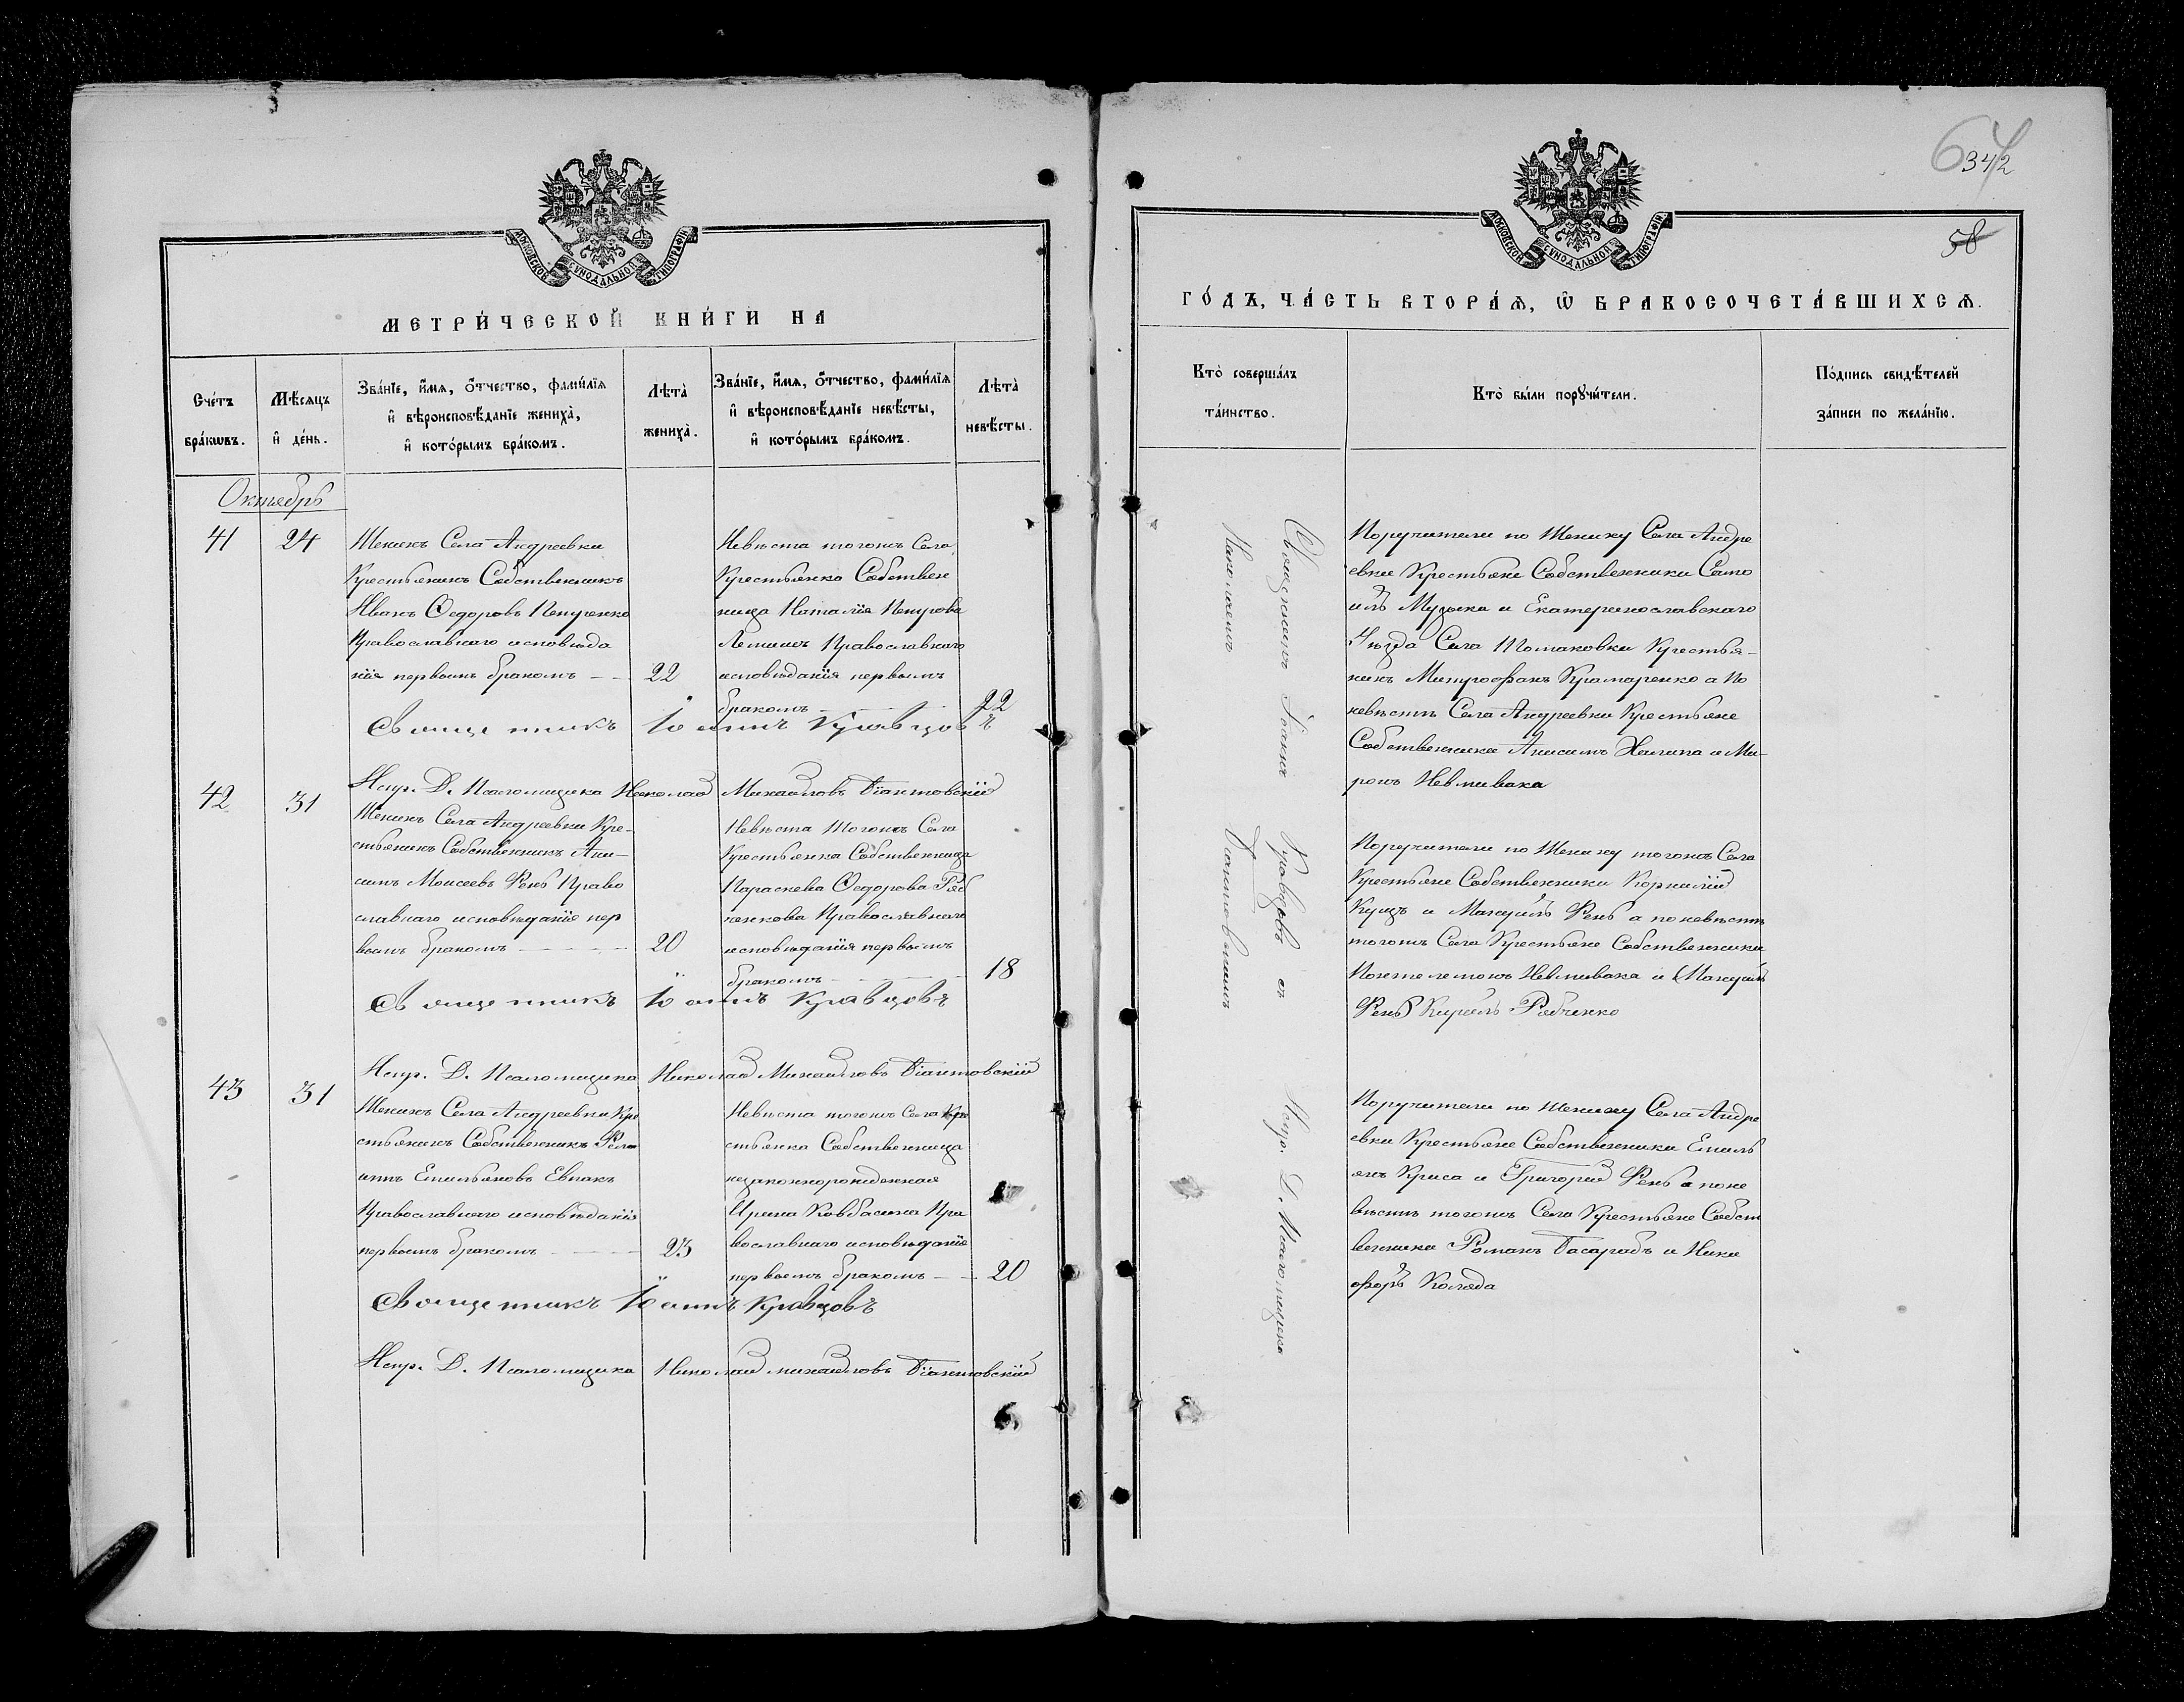 МОСКОВСКОЙ СѴНОДАЛЬНОЙ ТИПОГРАФІИ
МЕТРИ́ЧЕСКОЙ КНИ́ГИ НА
Сче́тъ бра́кѡвъ.
Мѣ́сяцъ и҆ де́нь.
Зва́нїе, и҆́мѧ, ѻ҆́тчество, фами́лїѧ
и҆ вѣроисповѣ́данїе жениха̀,
и҆ кото́рымъ бра́комъ.
Лѣта̀ жениха̀.
Зва́нїе, и҆́мѧ, ѻ҆́тчество, фами́лїѧ
и҆ вѣроисповѣ́данїе невѣ́сты,
и҆ кото́рымъ бра́комъ.
Лѣта̀ невѣ́сты.
Октябрь
41
24
Женихъ Села Андреевки
Крестьянинъ Собственникъ
Иванъ Федоровъ
Православнаго исповѣда
нія первымъ бракомъ
22
Невѣста тогожъ Села
Крестьянка Собствен
ница Наталія Петрова
Лемишъ Православнаго
исповѣданія первымъ
бракомъ
22
Священникъ Іоаннъ Кравцовъ
Испр. Д. Псаломщика Николай Михайловъ Біантовскій
42
31
Женихъ Села Андреевки Кре-
стьянинъ Собственникъ Ани-
симъ Моисеевъ Рень Право
славнаго исповѣданія пер
вымъ бракомъ
20
Невѣста тогожъ Села
Крестьянка Собственница
Параскева Федорова Ряб
ченкова Православнаго
исповѣданія первымъ
бракомъ
18
Священникъ Іоаннъ Кравцовъ
Испр. Д. Псаломщика Николай Михайловъ Біантовскій
43
31
Женихъ Села Андреевки Кре
стьянинъ Собственникъ
Емельяновъ Евпакъ
Православнаго исповѣданія
первымъ бракомъ
23
Невѣста тогожъ Села Кре
стьянка Собственница
незаконнорожденная
Ирина Ковбасина Пра
вославнаго исповѣданія
первымъ бракомъ
20
Священникъ Іоаннъ Кравцовъ
Испр. Д. Псаломщика Николай Михайловъ Біантовскій
342
58
МОСКОВСКОЙ СѴНОДАЛЬНОЙ ТИПОГРАФІИ
ГО́ДЪ, ЧА́СТЬ ВТОРА́Ѧ, Ѡ҆ БРАКОСОЧЕТА́ВШИХСѦ.
Кто̀ соверша́лъ
та́инство.
Кто̀ бы́ли порꙋчи́тели.
По́дпись свидѣ́телей
за́писи по жела́нїю.
Священникъ Іоаннъ Кравцовъ съ Испр. Д. Псаломщика
Николаемъ Біантовскимъ
Поручители по Жениху Села Андре
евки Крестьяне Собственники Само
илъ Музыка и Екатеринославскаго
Уѣзда Села Томаковки Крестья-
нинъ Митрофанъ Крамаренко а По
невѣстѣ Села Андреевки Крестьяне
Собственники Анисимъ Халипа и Ми-
ронъ Невмивака
Поручители по Жениху тогожъ Села
Крестьяне Собственники Корнилій
Куцъ и Мануилъ Рень а по невѣстѣ
тогожъ Села Крестьяне Собственники
Пантелемонъ Невмивака и Мануилъ
Рень Кирилъ Рябченко
Поручители по Жениху Села Андре
евки Крестьяне Собственники Емель
янъ Криса и Григорій Рень а по не
вѣстѣ тогожъ Села Крестьяне Собст
венники Романъ Басарабъ и Ники
форъ Коляда